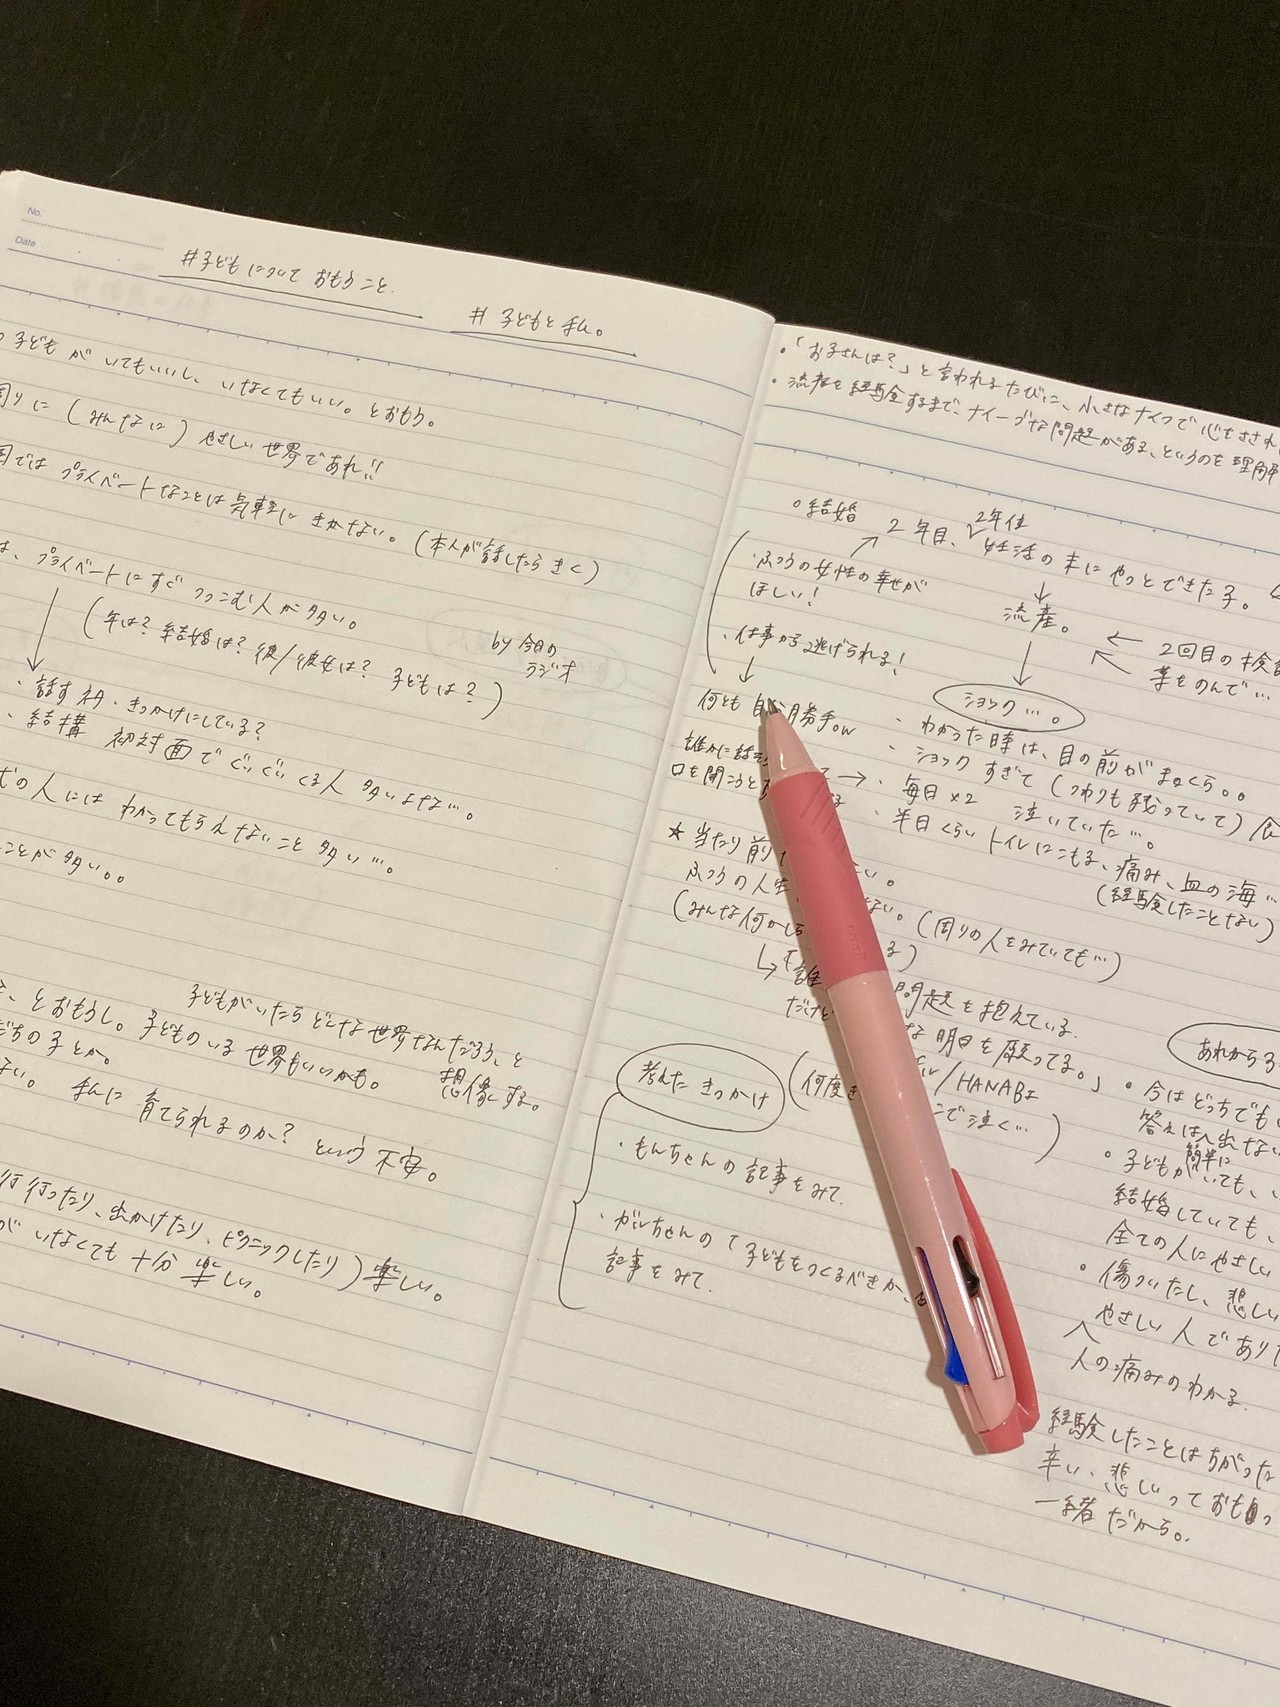 No.
Date
#子どもについておもうこと.
#子どもと私。
子どもがいてもいいし、いなくてもいい。とおもう。
周りに(みんなに)やさしい世界であれ!!
国ではプライベートなことは気軽にきかない。(本人が話したらきく)
は、プライベートにすぐつっこむ人が多い。
(年は?結婚は?彼/彼女は?子どもは?)
by 今日の
ラジオ
・話すネタ・きっかけにしている?
・結構 初対面でぐいぐいくる人多いよな…。
の人にはわかってもらえないこと多い…。
ことが多い。。
子どもがいたらどんな世界なんだろう、と
想像する。
、とおもうし。子どものいる世界もいいかも。
だちの子とか。
ない。 私に育てられるのか?という不安。
行行ったり、出かけたり、ピクニックしたり)楽しい。
がいなくても十分楽しい。
・「お子さんは?」と言われるたびに、小さなナイフで心をさされ
・流産を経験するまで、ナイーブな問題がある、というのを理解
○結婚
2年目、2年位妊活の末にやっとできた子。
・ふつうの女性の幸せが
ほしい!
流産。
・仕事から逃げられる!
2回目の検
薬をのんで…
ショック…。
何とも自 勝手。w
・わかった時は、目の前がまっくら。。
・ショックすぎて(つわりも残っていて)食
誰かに話そ
口を開こうと
て→・毎日×2 泣いていた…。
・半日くらいトイレにこもる、痛み、血の海…
(経験したことない)
★当たり前
い。
ふつうの人生
ない。(周りの人をみていても…)
(みんな何かしら
る)
「誰
問題を抱えている.
だけど
な明日を願ってる。」
/HANABI
で泣く…
考えたきっかけ
(何度
・もんちゃんの記事をみて.
・がいちゃんの「子どもをつくるべきか、
記事をみて.
あれから3
・今はどっちでも
答えは出ない
簡単に
・子どもがいても、
結婚していても、
全ての人にやさしい
・傷ついたし、悲しい
やさしい人でありた
人の痛みのわかる.
経験したことはちがった
辛い、悲しいっておもっ
一緒だから。